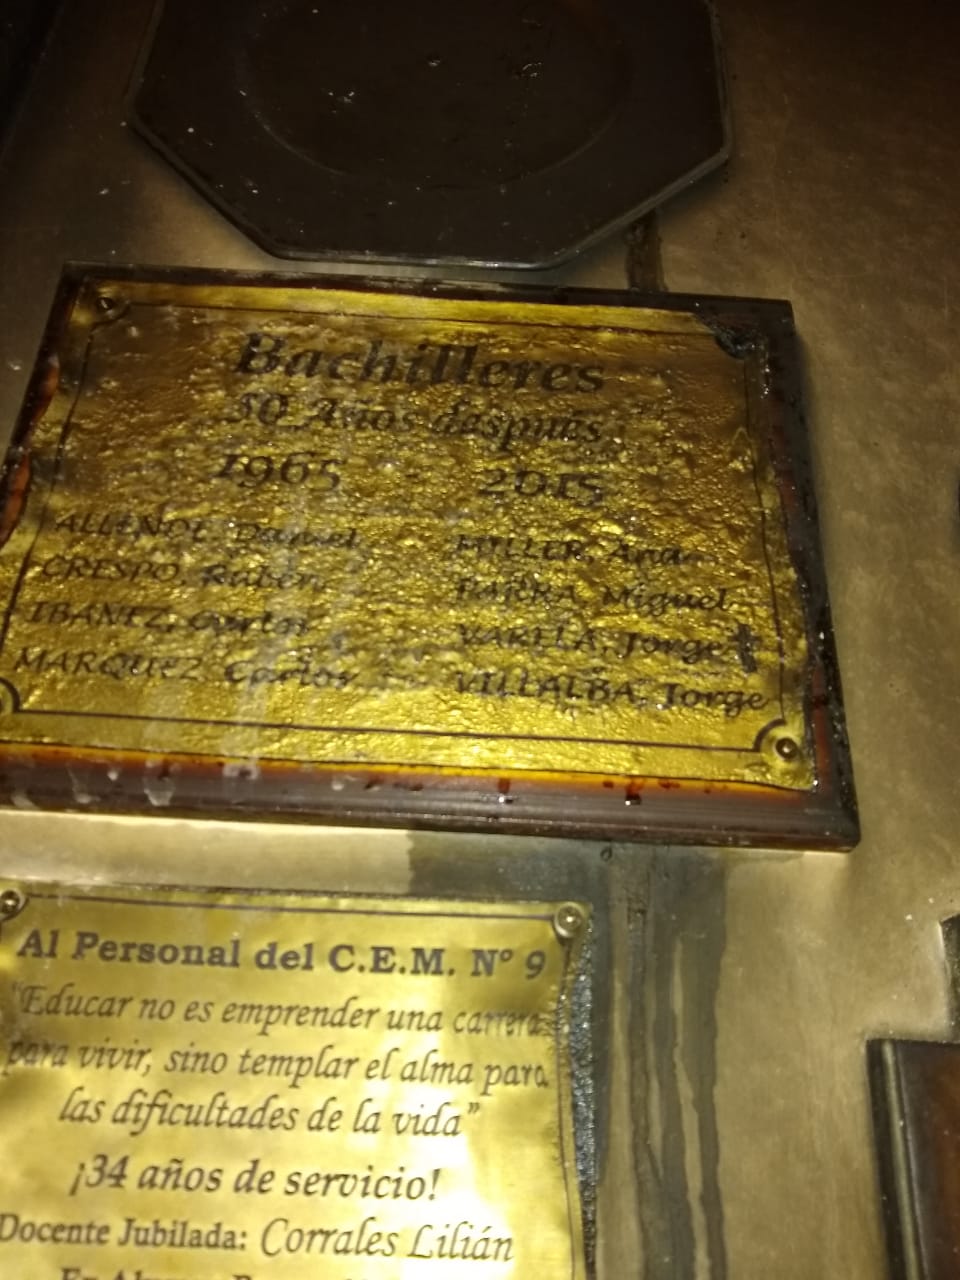 Bachilleres
50 Años después
1965 - 2015
ALLENDE, Daniel
CRESPO, Rubén
IBAÑEZ, Carlos
MARQUEZ, Carlos
MILLER, Ana
PARRA, Miguel
VARELA, Jorge ✝
VILLALBA, Jorge
Al Personal del C.E.M. Nº 9
"Educar no es emprender una carrera
para vivir, sino templar el alma para
las dificultades de la vida"
¡34 años de servicio!
Docente Jubilada: Corrales Lilián